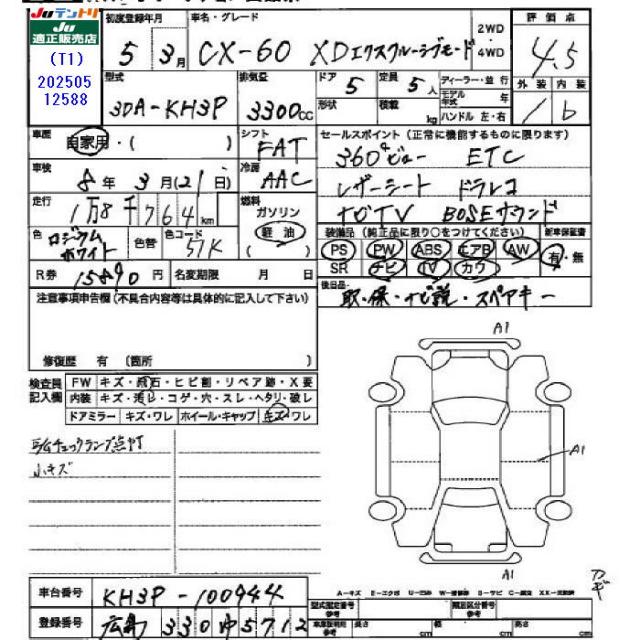 Juテントリ
Ju
適正販売店
(T1)
202505
12588
初度登録年月
5年3月
車名・グレード
CX-60 XDエクスクルーシブモード
2WD
4WD
評価点
4.5
外装 内装
1 b
型式
3DA-KH3P
排気量
3300cc
ドア 5
定員 5人
形状
積載 kg
ディーラー・並行
モデル年式 年
ハンドル 左・右
車歴
自家用・( )
シフト
FAT
セールスポイント(正常に機能するものに限ります)
360°ビュー ETC
レザーシート ドラレコ
ナビTV BOSEサウンド
車検
8年3月(21日)
冷房
AAC
走行
1万8千764km
燃料
ガソリン
軽油
色
ロジウム
ホワイト
色替
色コード
51K
装備品(純正品に限り○をつけてください)
新車保証書
PS PW ABS エアB AW
有・無
SR ナビ TV カワ
R券 15890円
名変期限 月 日
後日品
取・保・ナビ説・スペアキー
注意事項申告欄(不具合内容等は具体的に記入して下さい)
修復歴 有 (箇所 )
検査員
記入欄
FW キズ・飛石・ヒビ割・リペア跡・X要
内装 キズ・汚レ・コゲ・穴・スレ・ヘタリ・破レ
ドアミラー キズ・ワレ ホイール・キャップ キズ・ワレ
E/Gチェックランプ点灯
小キズ
A1
A1
A1
車台番号
KH3P-100944
登録番号
広島330ゆ5712
A=キズ E=エクボ U=凹み W=補修跡 S=サビ C=腐食 XX=交換済
型式指定番号
参考
類別区分番号
参考
車車証明用
参考
長さ cm
幅 cm
高さ cm